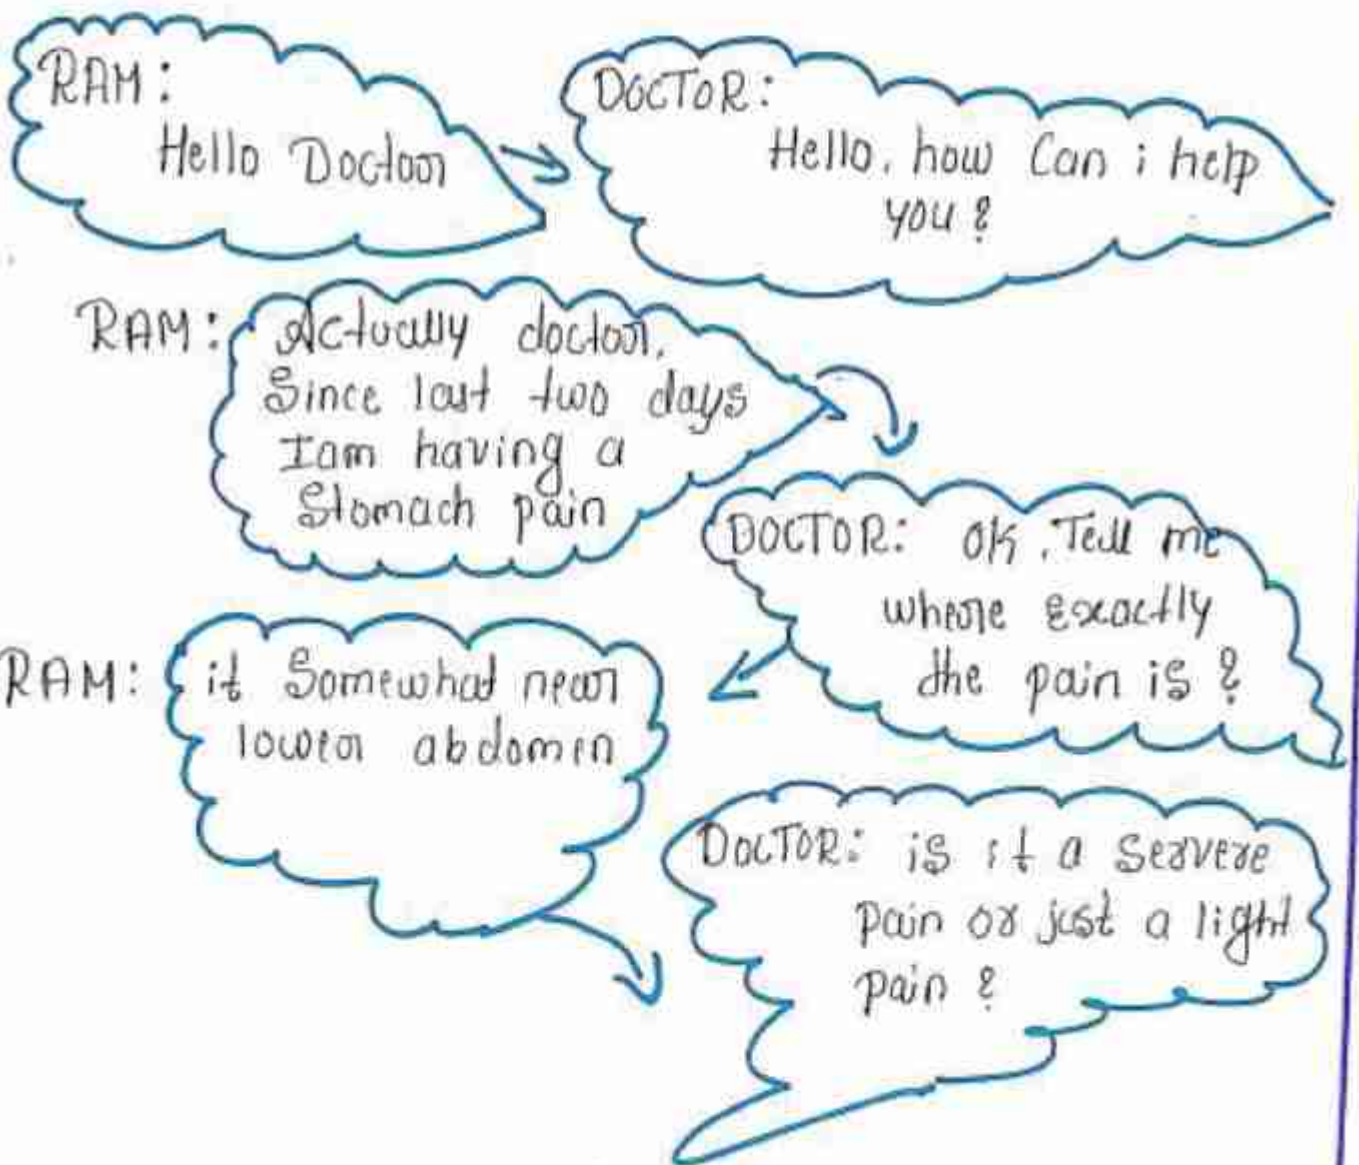 RAM:
Hello Doctor
DOCTOR:
Hello, how Can i help
you?
RAM: Actually doctor,
Since last two days
I am having a
Stomach pain
DOCTOR: OK, Tell me
where Exactly
the pain is?
RAM: it Somewhat near
lower abdomen
DOCTOR: is it a servere
pain or just a light
pain?